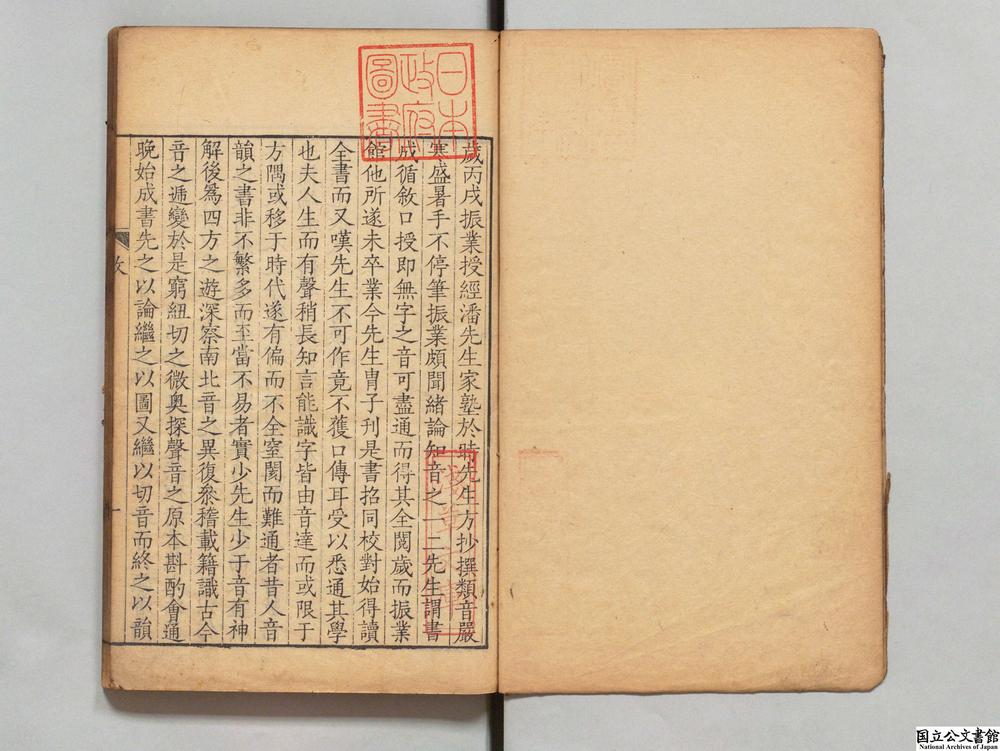 日本
政府
圖書
歲丙戌振業授經潘先生家塾於時先生方抄撰類音嚴
寒盛暑手不停筆振業頗聞緒論知音之一二先生謂書
成循敘口授即無字之音可盡通而得其全閱歲而振業
館他所遂未卒業今先生冑子刊是書招同校對始得讀
全書而又嘆先生不可作竟不獲口傳耳受以悉通其學
也夫人生而有聲稍長知言能識字皆由音達而或限于
方隅或移于時代遂有偏而不全窒閡而難通者昔人音
韻之書非不繁多而至當不易者實少先生少于音有神
解後爲四方之遊深察南北音之異復叅稽載籍識古今
音之遞變於是窮紐切之微奧探聲音之原本斟酌會通
晚始成書先之以論繼之以圖又繼以切音而終之以韻
一
国立公文書館
National Archives of Japan